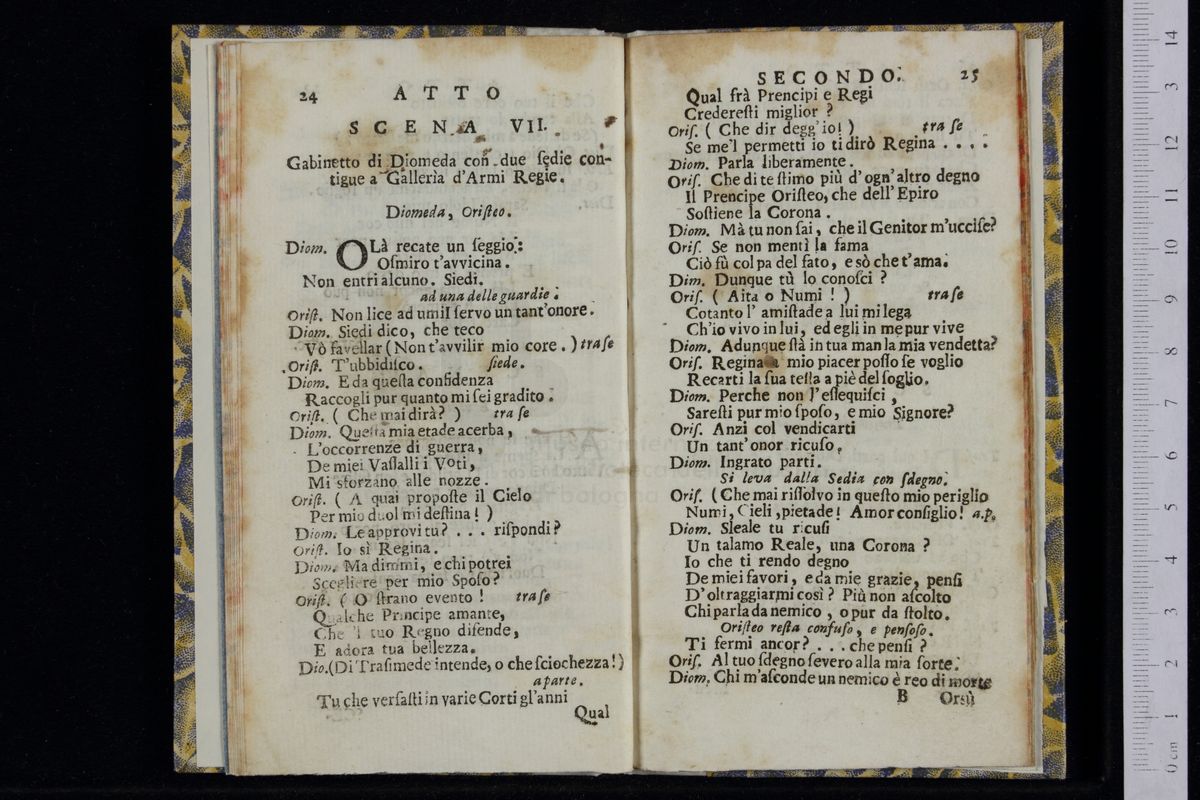 24 ATTO
SCENA VII.
Gabinetto di Diomeda con due sedie con-
tigue a Gallerìa d'Armi Regie.
Diomeda, Oriſteo.
Diom. OLà recate un ſeggio:
Oſmiro t'avvicina.
Non entri alcuno. Siedi.
ad una delle guardie.
Oriſt. Non lice ad umil ſervo un tant'onore.
Diom. Siedi dico, che teco
Vò favellar (Non t'avvilir mio core.) tra ſe
Oriſt. T'ubbidiſco. ſiede.
Diom. E da queſta confidenza
Raccogli pur quanto mi ſei gradito.
Oriſt. ( Che mai dirà? ) tra ſe
Diom. Queſta mia etade acerba,
L'occorrenze di guerra,
De miei Vaſſalli i Voti,
Mi sforzano alle nozze.
Oriſt. ( A quai propoſte il Cielo
Per mio duol mi deſtina! )
Diom. Le approvi tu? . . . riſpondi?
Oriſt. Io sì Regina.
Diom. Ma dimmi, e chi potrei
Scegliere per mio Spoſo?
Oriſt. ( O ſtrano evento ! tra ſe
Qualche Principe amante,
Che 'l tuo Regno difende,
E adora tua bellezza.
Dio. (Di Traſimede intende, o che ſciochezza!)
a parte.
Tu che verſaſti in varie Corti gl'anni
Qual
SECONDO. 25
Qual frà Prencipi e Regi
Credereſti miglior ?
Oriſ. ( Che dir degg'io! ) tra ſe
Se me'l permetti io ti dirò Regina . . . .
Diom. Parla liberamente.
Oriſ. Che di te ſtimo più d'ogn'altro degno
Il Prencipe Oriſteo, che dell'Epiro
Soſtiene la Corona.
Diom. Mà tu non ſai, che il Genitor m'ucciſe?
Oriſ. Se non mentì la fama
Ciò fù colpa del fato, e sò che t'ama.
Dim. Dunque tù lo conoſci ?
Oriſ. ( Aita o Numi ! ) tra ſe
Cotanto l' amiſtade a lui mi lega
Ch'io vivo in lui, ed egli in me pur vive
Diom. Adunque ſtà in tua man la mia vendetta?
Oriſ. Regina a mio piacer poſſo ſe voglio
Recarti la ſua teſta a piè del ſoglio.
Diom. Perche non l'eſſequiſci,
Sareſti pur mio ſpoſo, e mio Signore?
Oriſ. Anzi col vendicarti
Un tant'onor ricuſo.
Diom. Ingrato parti.
Si leva dalla Sedia con ſdegno.
Oriſ. (Che mai riſſolvo in queſto mio periglio
Numi, Cieli, pietade! Amor conſiglio! a.p.
Diom. Sleale tu ricuſi
Un talamo Reale, una Corona ?
Io che ti rendo degno
De miei favori, e da mie grazie, penſi
D'oltraggiarmi così? Più non aſcolto
Chi parla da nemico, o pur da ſtolto.
Oriſteo reſta confuſo, e penſoſo.
Ti fermi ancor? . . . che penſi ?
Oriſ. Al tuo ſdegno ſevero alla mia ſorte.
Diom. Chi m'aſconde un nemico è reo di morte
B Orsù
14
13
12
11
10
9
8
7
6
5
4
3
2
1
0 cm